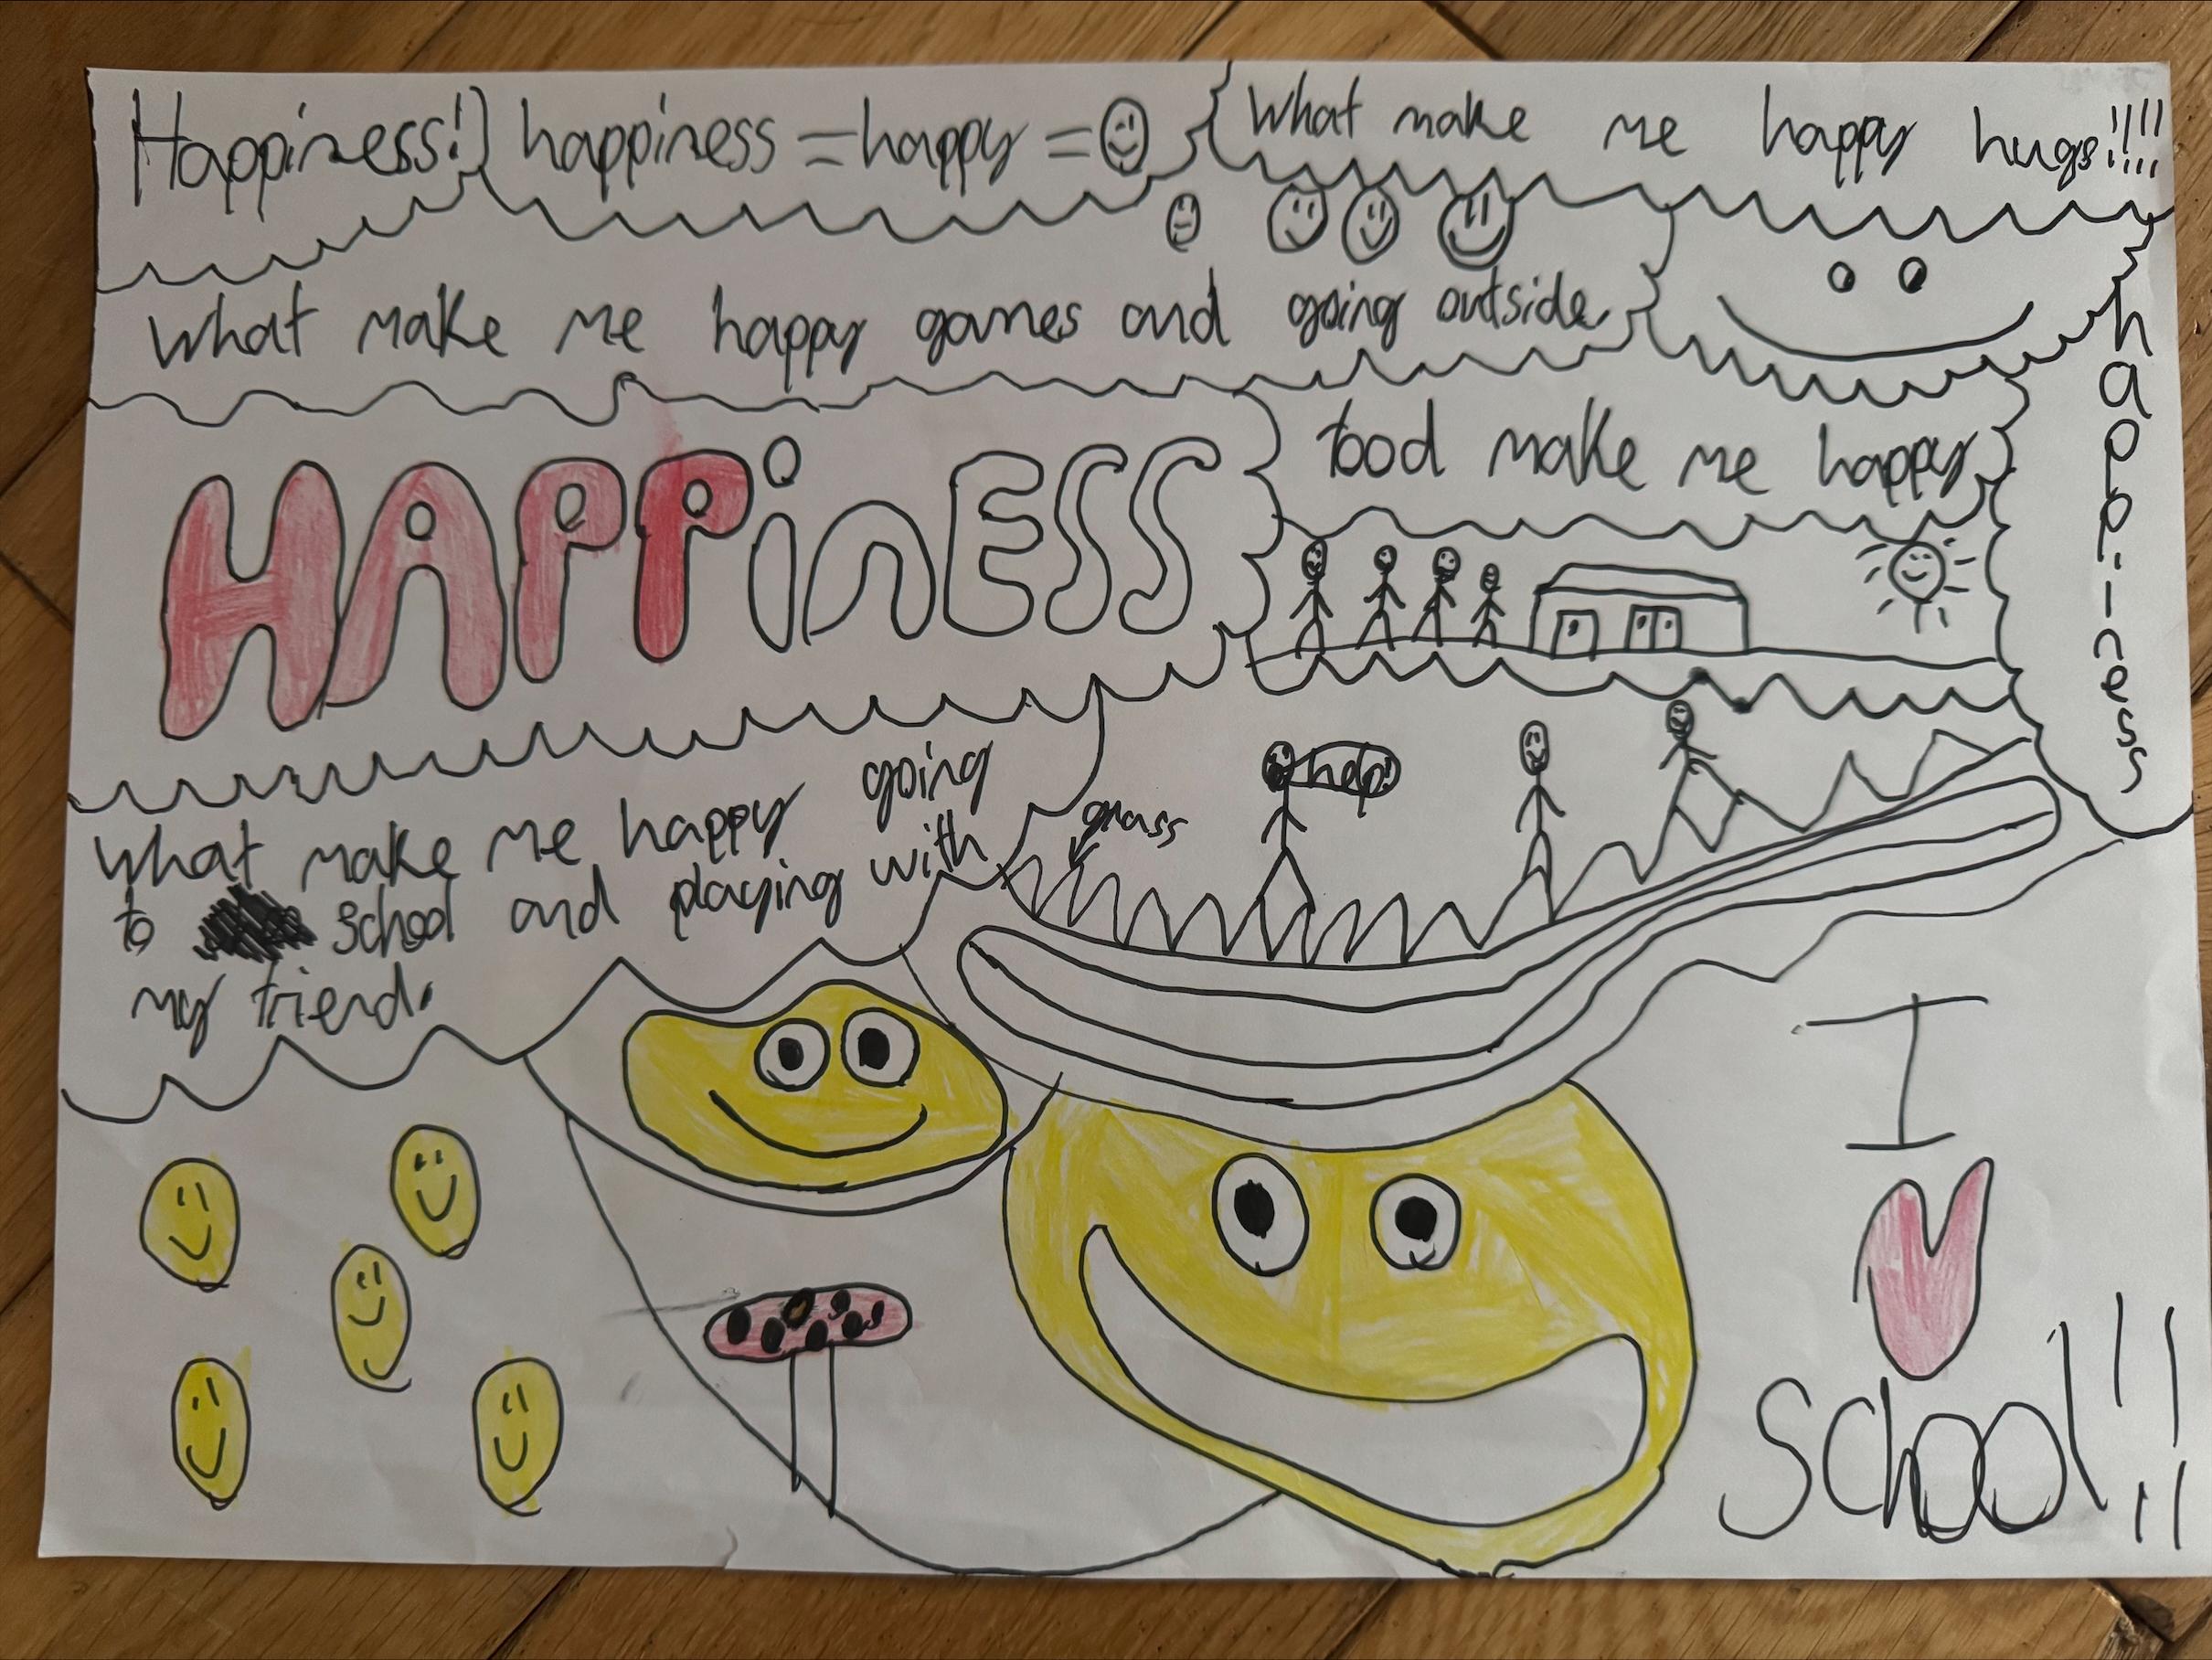 Happiness!
happiness = happy =
What make me happy hugs!!!!
what make me happy games and going outside
HAPPiNESS
food make me happy
happiness
what make me happy going
to school and playing with
my friend.
grass
help!
I
School!!